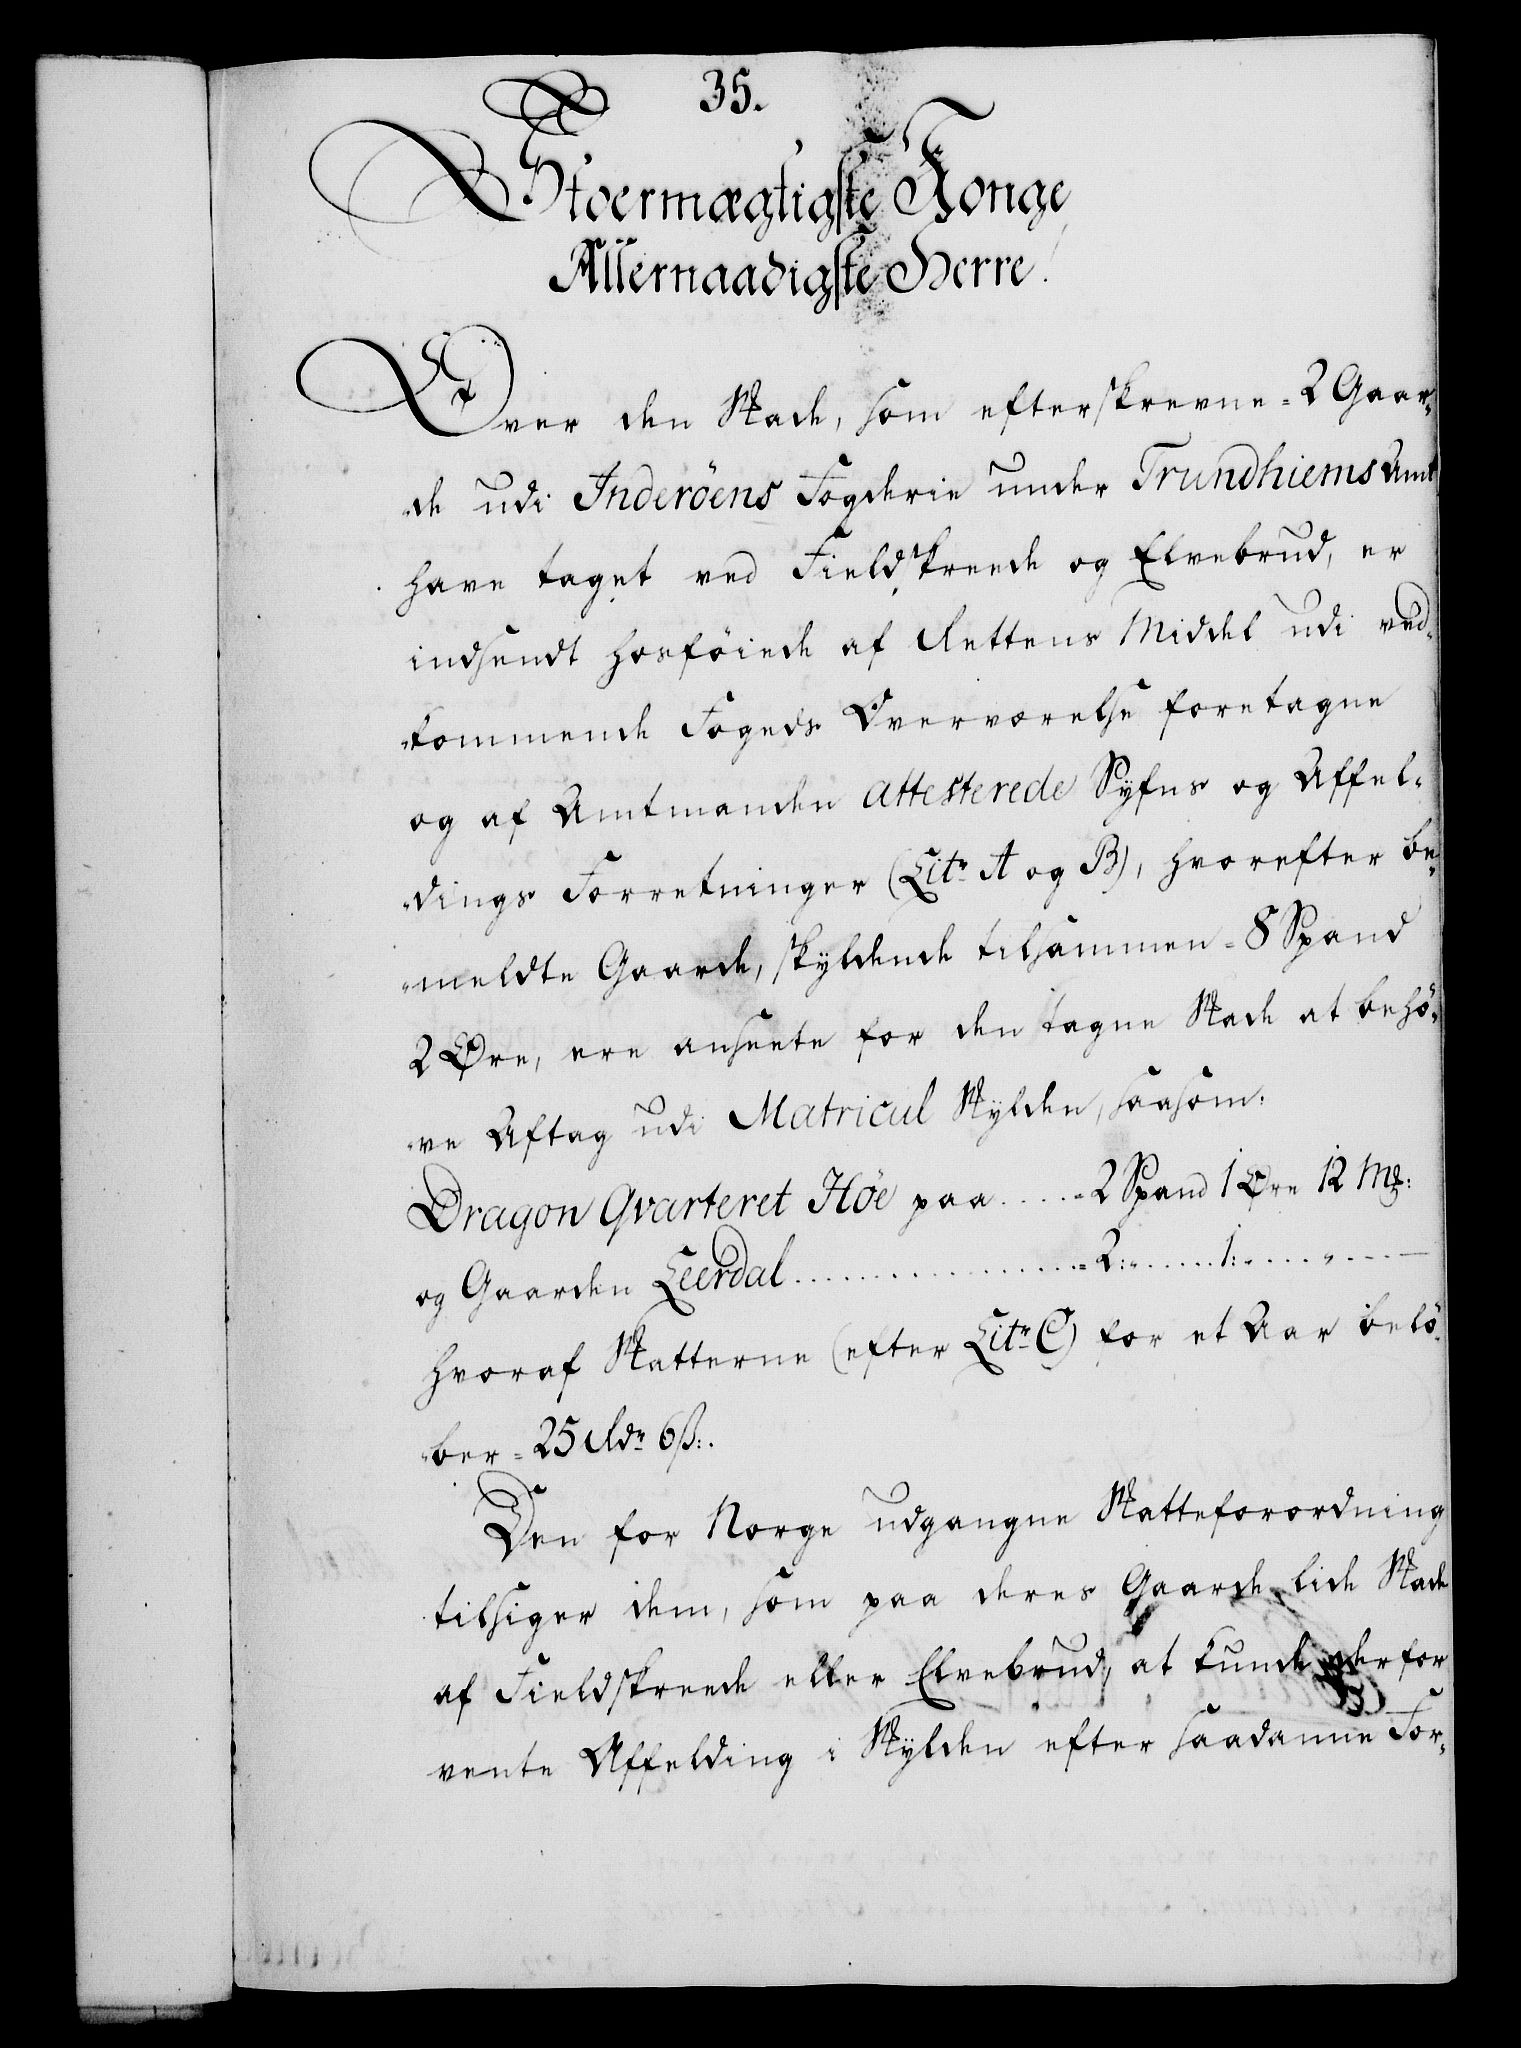 35.
Stoermægtigste Konge
Allernaadigste Herre!
Over den Skade, som efterskrevne = 2 Gaar„
„de udi Inderöens Fogderie under Trundhiems Amt
have taget ved Fieldskreede og Elvebrud, er
indsendt hosföiede af Rettens Middel udi ved„
„kommende Fogeds Overværelse foretagne
og af Amtmanden attesterede Syfns og Affel„
„dings Forretninger (Litr A og B), hvorefter be„
„meldte Gaarde, skyldende tilsammen = 8 Spand
2 Øre, ere anseete for den tagne Skade at behö„
„ve Aftag udi Matricul Skylden, saasom:
Dragon Qvarteret Höe paa ..... = 2 Spand 1 Øre 12 Mk:
og Gaarden Leerdal .................. = 2: „ ...... 1: „ .... „ ...
hvoraf Skatterne (efter Litr C) for et Aar belö„
„ber = 25 Rdr 6 ß:.
Den for Norge udgangne Skatteforordning
tilsiger dem, som paa deres Gaarde lide Skade
af Fieldskreede eller Elvebrud, at kunde derfor
vente Affelding i Skylden efter saadanne For„